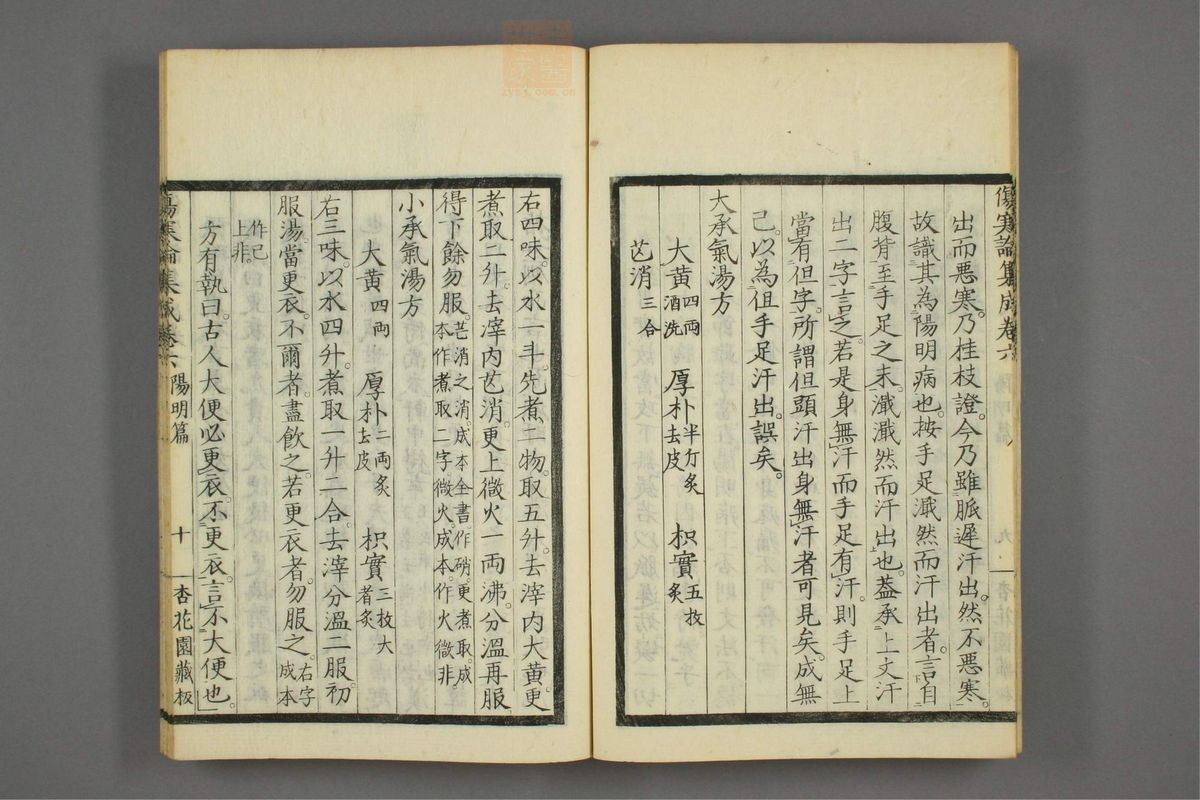 傷寒論集成卷六
出而惡寒。乃桂枝證。今乃雖脈遲汗出。然不惡寒。
故識其為陽明病也。按手足濈然而汗出者。言自
腹背至手足之末。濈濈然而汗出也。蓋承上文汗
出二字言之。若是身無汗而手足有汗。則手足上
當有但字。所謂但頭汗出身無汗者可見矣。成無
己。以為但手足汗出。誤矣。
大承氣湯方
大黃四兩酒洗 厚朴半斤炙去皮 枳實五枚炙
芒消三合
右四味。以水一斗。先煮二物。取五升。去滓內大黃。更
煮取二升。去滓內芒消。更上微火一兩沸。分溫再服
得下餘勿服。芒消之消。成本全書作硝。更煮取。成本作煮取二字微火。成本。作火微非
小承氣湯方
大黃四兩 厚朴二兩炙去皮 枳實三枚大者炙
右三味。以水四升。煮取一升二合。去滓分溫二服。初
服湯當更衣。不爾者。盡飲之。若更衣者。勿服之。右字成本
作已上非
方有執曰。古人大便必更衣。不更衣。言不大便也。
傷寒論集成卷六 陽明篇 十 杏花園藏板
zysj.com.cn